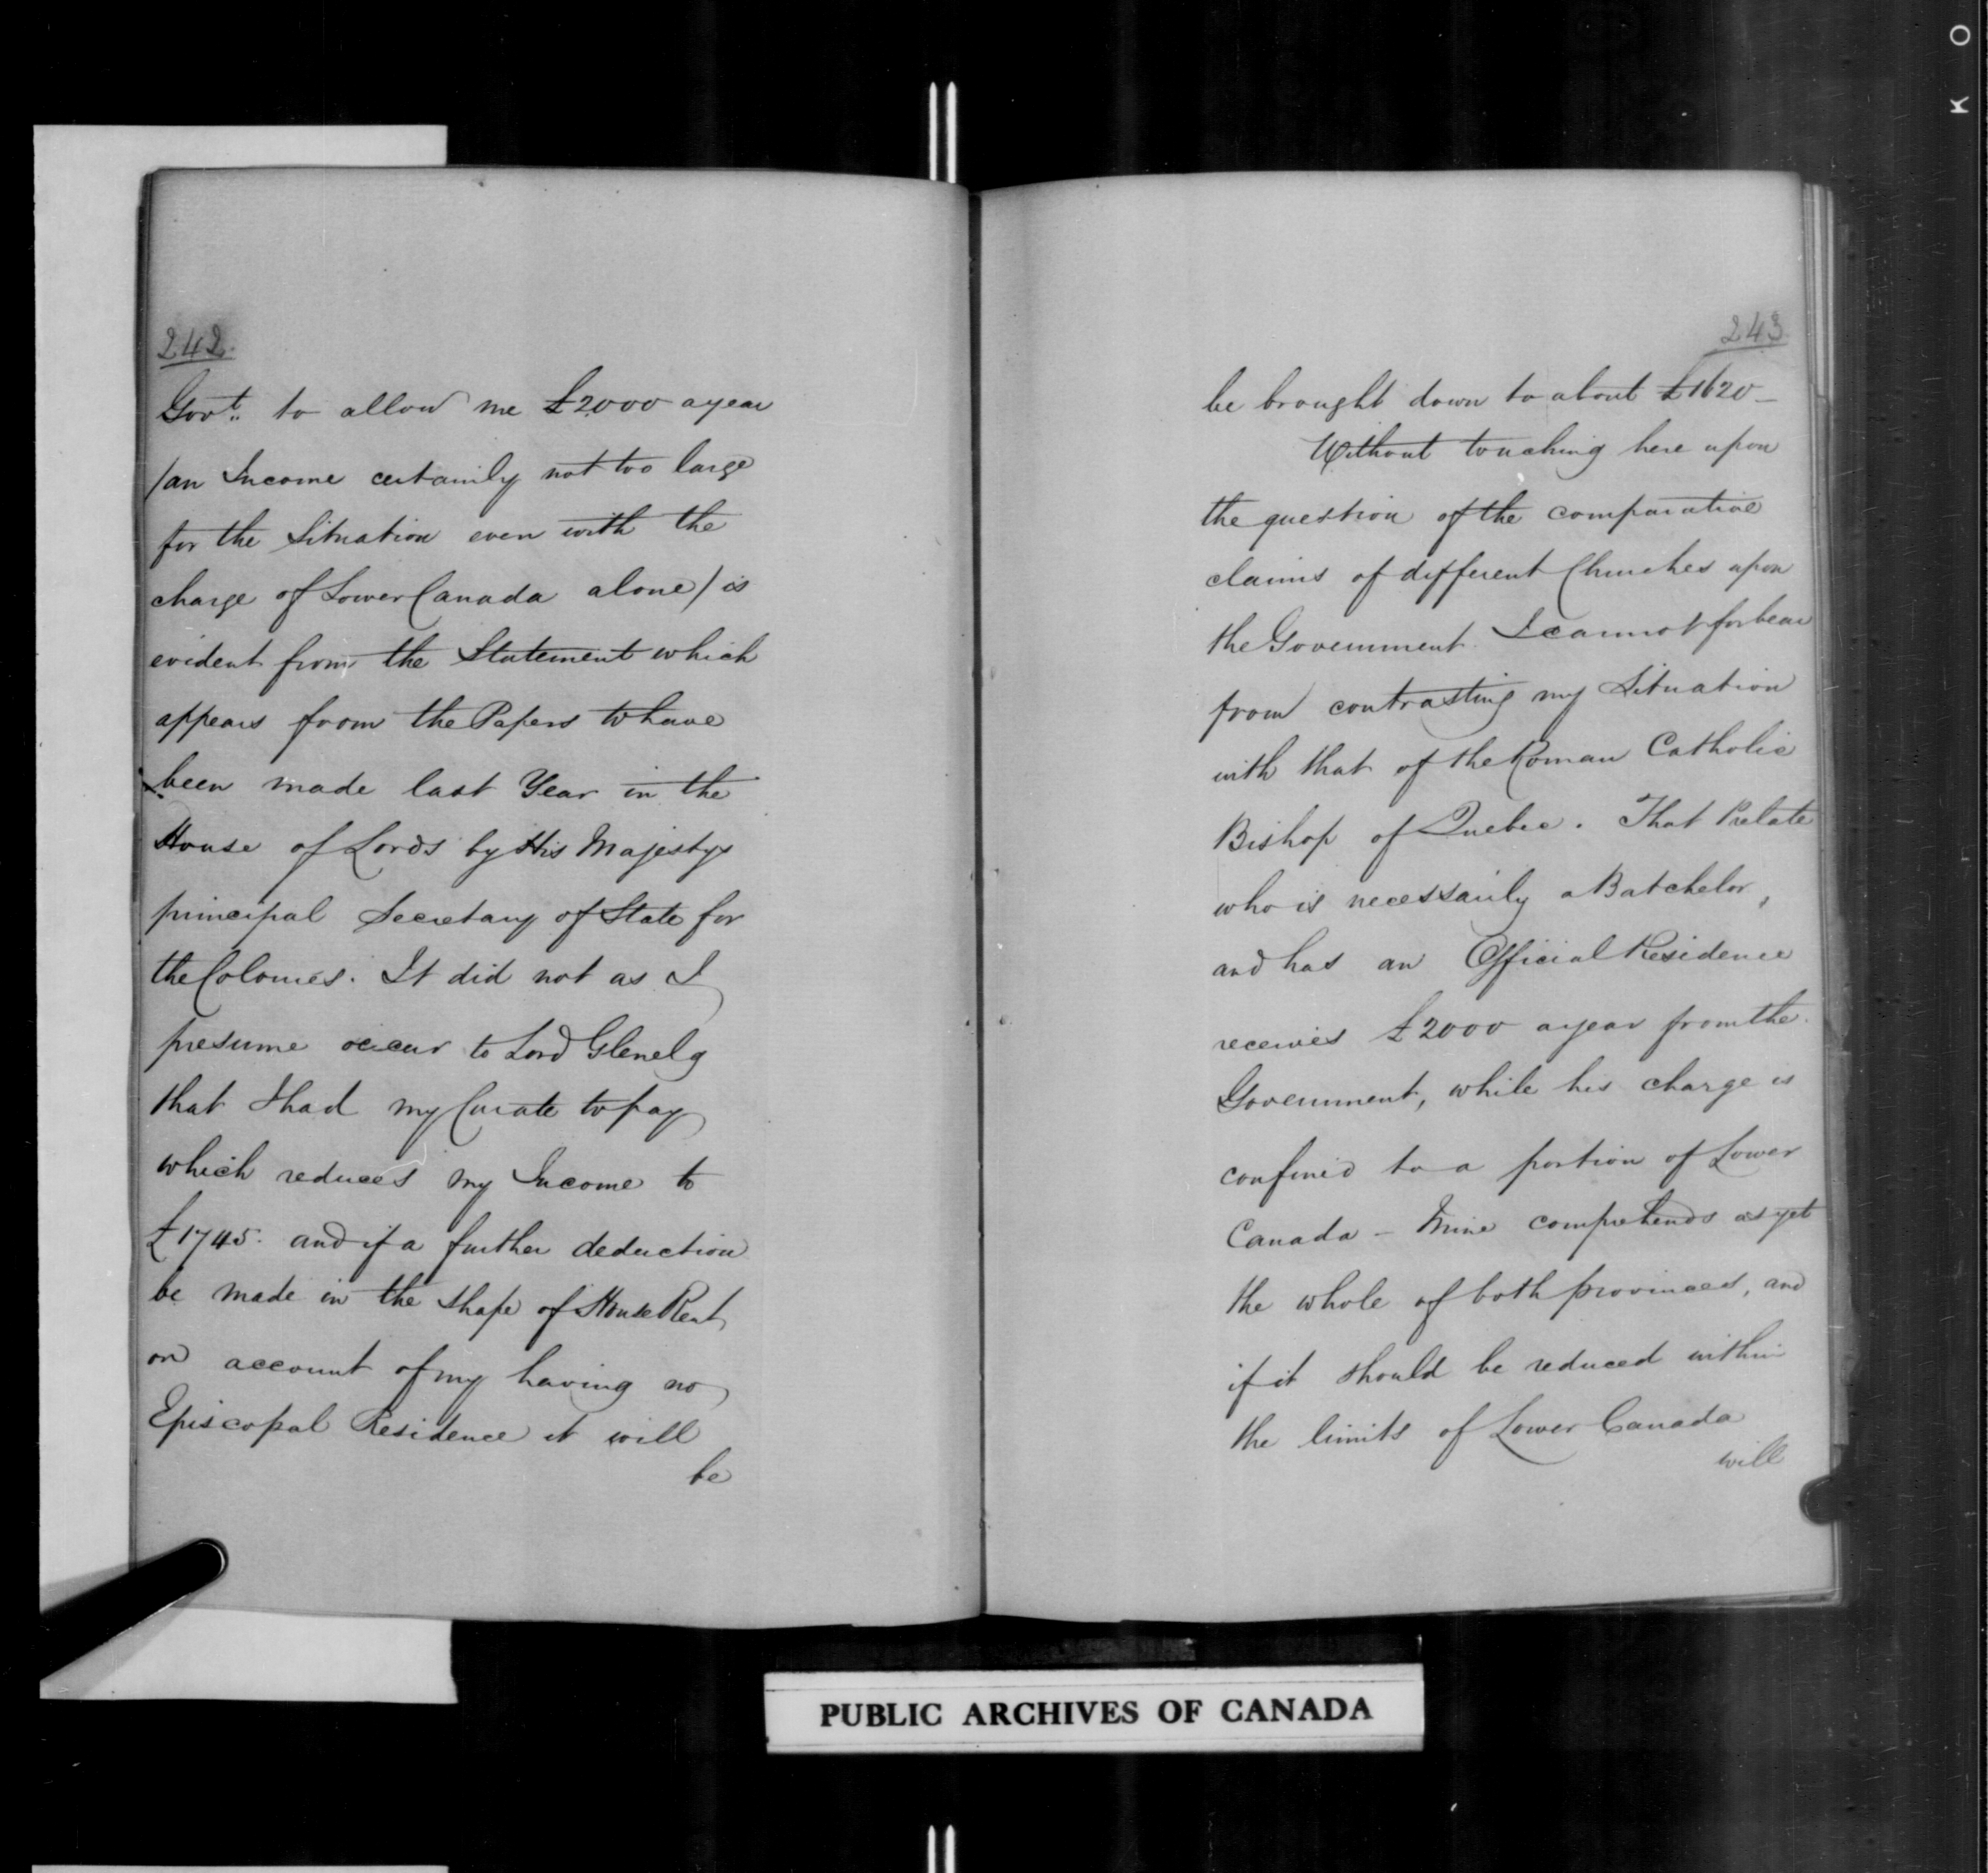 242.
Govt. to allow me £2000 a year
/an Income certainly not too large
for the Situation even with the
charge of Lower Canada alone/ is
evident from the Statement which
appears from the Papers to have
been made last Year in the
House of Lords by His Majestys
principal Secretary of State for
the Colonies. It did not as I
presume occur to Lord Glenelg
that I had my Curate to pay
which reduces my Income to
£1745. and if a further deduction
be made in the shape of House Rent
on account of my having no
Episcopal Residence it will
be
243
be brought down to about £1620 —
Without touching here upon
the question of the comparative
claims of different Churches upon
the Government. I cannot forbear
from contrasting my Situation
with that of the Roman Catholic
Bishop of Quebec. That Prelate
who is necessarily a Batchelor,
and has an Official Residence
receives £2000 a year from the
Government, while his charge is
confined to a portion of Lower
Canada — Mine comprehends as yet
the whole of both provinces, and
if it should be reduced within
the limits of Lower Canada
will
PUBLIC ARCHIVES OF CANADA
K O